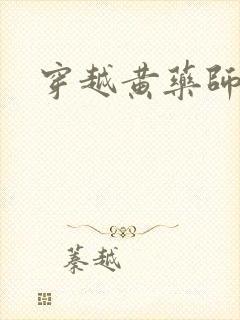 穿越黃藥師
綦越